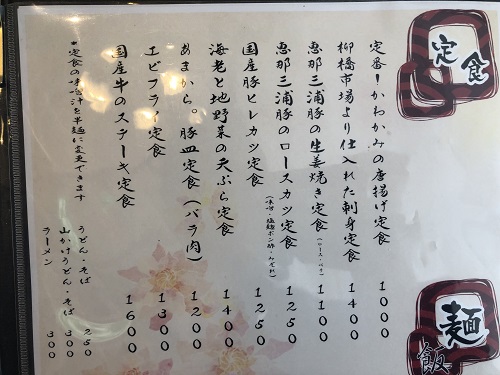 定食
定番!かわかみの唐揚げ定食 1000
柳橋市場より仕入れた刺身定食 1400
恵那三浦豚の生姜焼き定食(ロース・バラ) 1100
恵那三浦豚のロースカツ定食 1250
(味噌・塩麹ポン酢・みぞれ)
国産豚ヒレカツ定食 1250
海老と地野菜の天ぷら定食 1400
あまから。豚皿定食(バラ肉) 1200
エビフライ定食 1300
国産牛のステーキ定食 1600
*定食の味噌汁を半麺に変更できます
うどん・そば 250
山かけうどん・そば 300
ラーメン 300
麺
飯